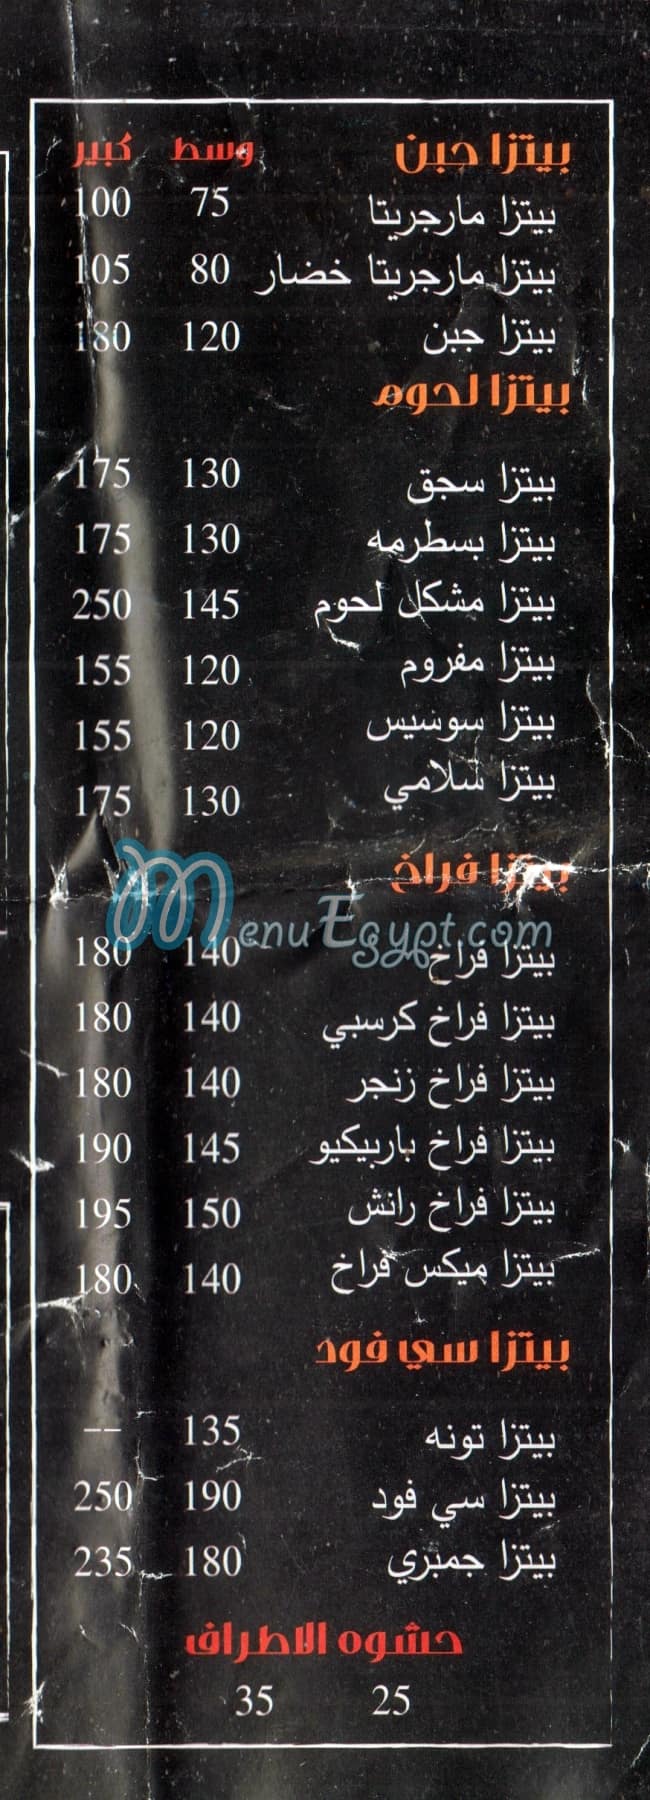 بيتزا جبن وسط كبير
بيتزا مارجريتا 75 100
بيتزا مارجريتا خضار 80 105
بيتزا جبن 120 180
بيتزا لحوم
بيتزا سجق 130 175
بيتزا بسطرمه 130 175
بيتزا مشكل لحوم 145 250
بيتزا مفروم 120 155
بيتزا سوسيس 120 155
بيتزا سلامي 130 175
بيتزا فراخ
MenuEgypt.com
بيتزا فراخ 140 180
بيتزا فراخ كرسبي 140 180
بيتزا فراخ زنجر 140 180
بيتزا فراخ باربيكيو 145 190
بيتزا فراخ رانش 150 195
بيتزا ميكس فراخ 140 180
بيتزا سي فود
بيتزا تونه 135 --
بيتزا سي فود 190 250
بيتزا جمبري 180 235
حشوه الاطراف
25 35